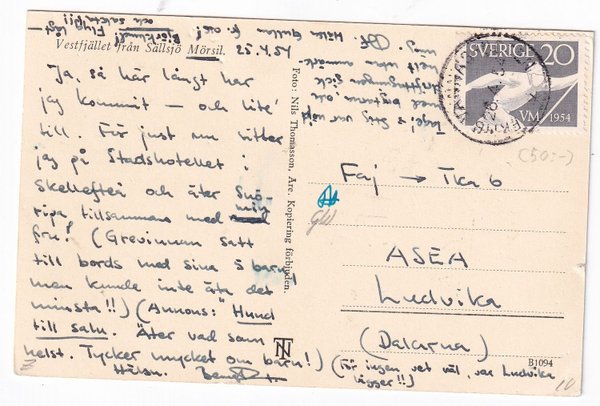 Vestfjället från Sällsjö Mörsil.
25.4.54
Ja, så här långt har
jag kommit – och lite'
till. För just nu sitter
jag på Stadshotellet i
Skellefteå och äter Snö-
ripa tillsammans med min
fru! (Grevinnan satt
till bords med sina 5 barn
men kunde inte äta det
minsta!!) (Annons: "Hund
till salu. Äter vad som
helst. Tycker mycket om barn!)
Hälsn. Bengt
och
Foto: Nils Thomasson, Åre. Kopiering förbjuden.
NT
SVERIGE 20
VM 1954
(50:-)
Faj → Tka 6
ASEA
Ludvika
(Dalarna)
B1094
(För ingen vet väl, var Ludvika
ligger!!)
10